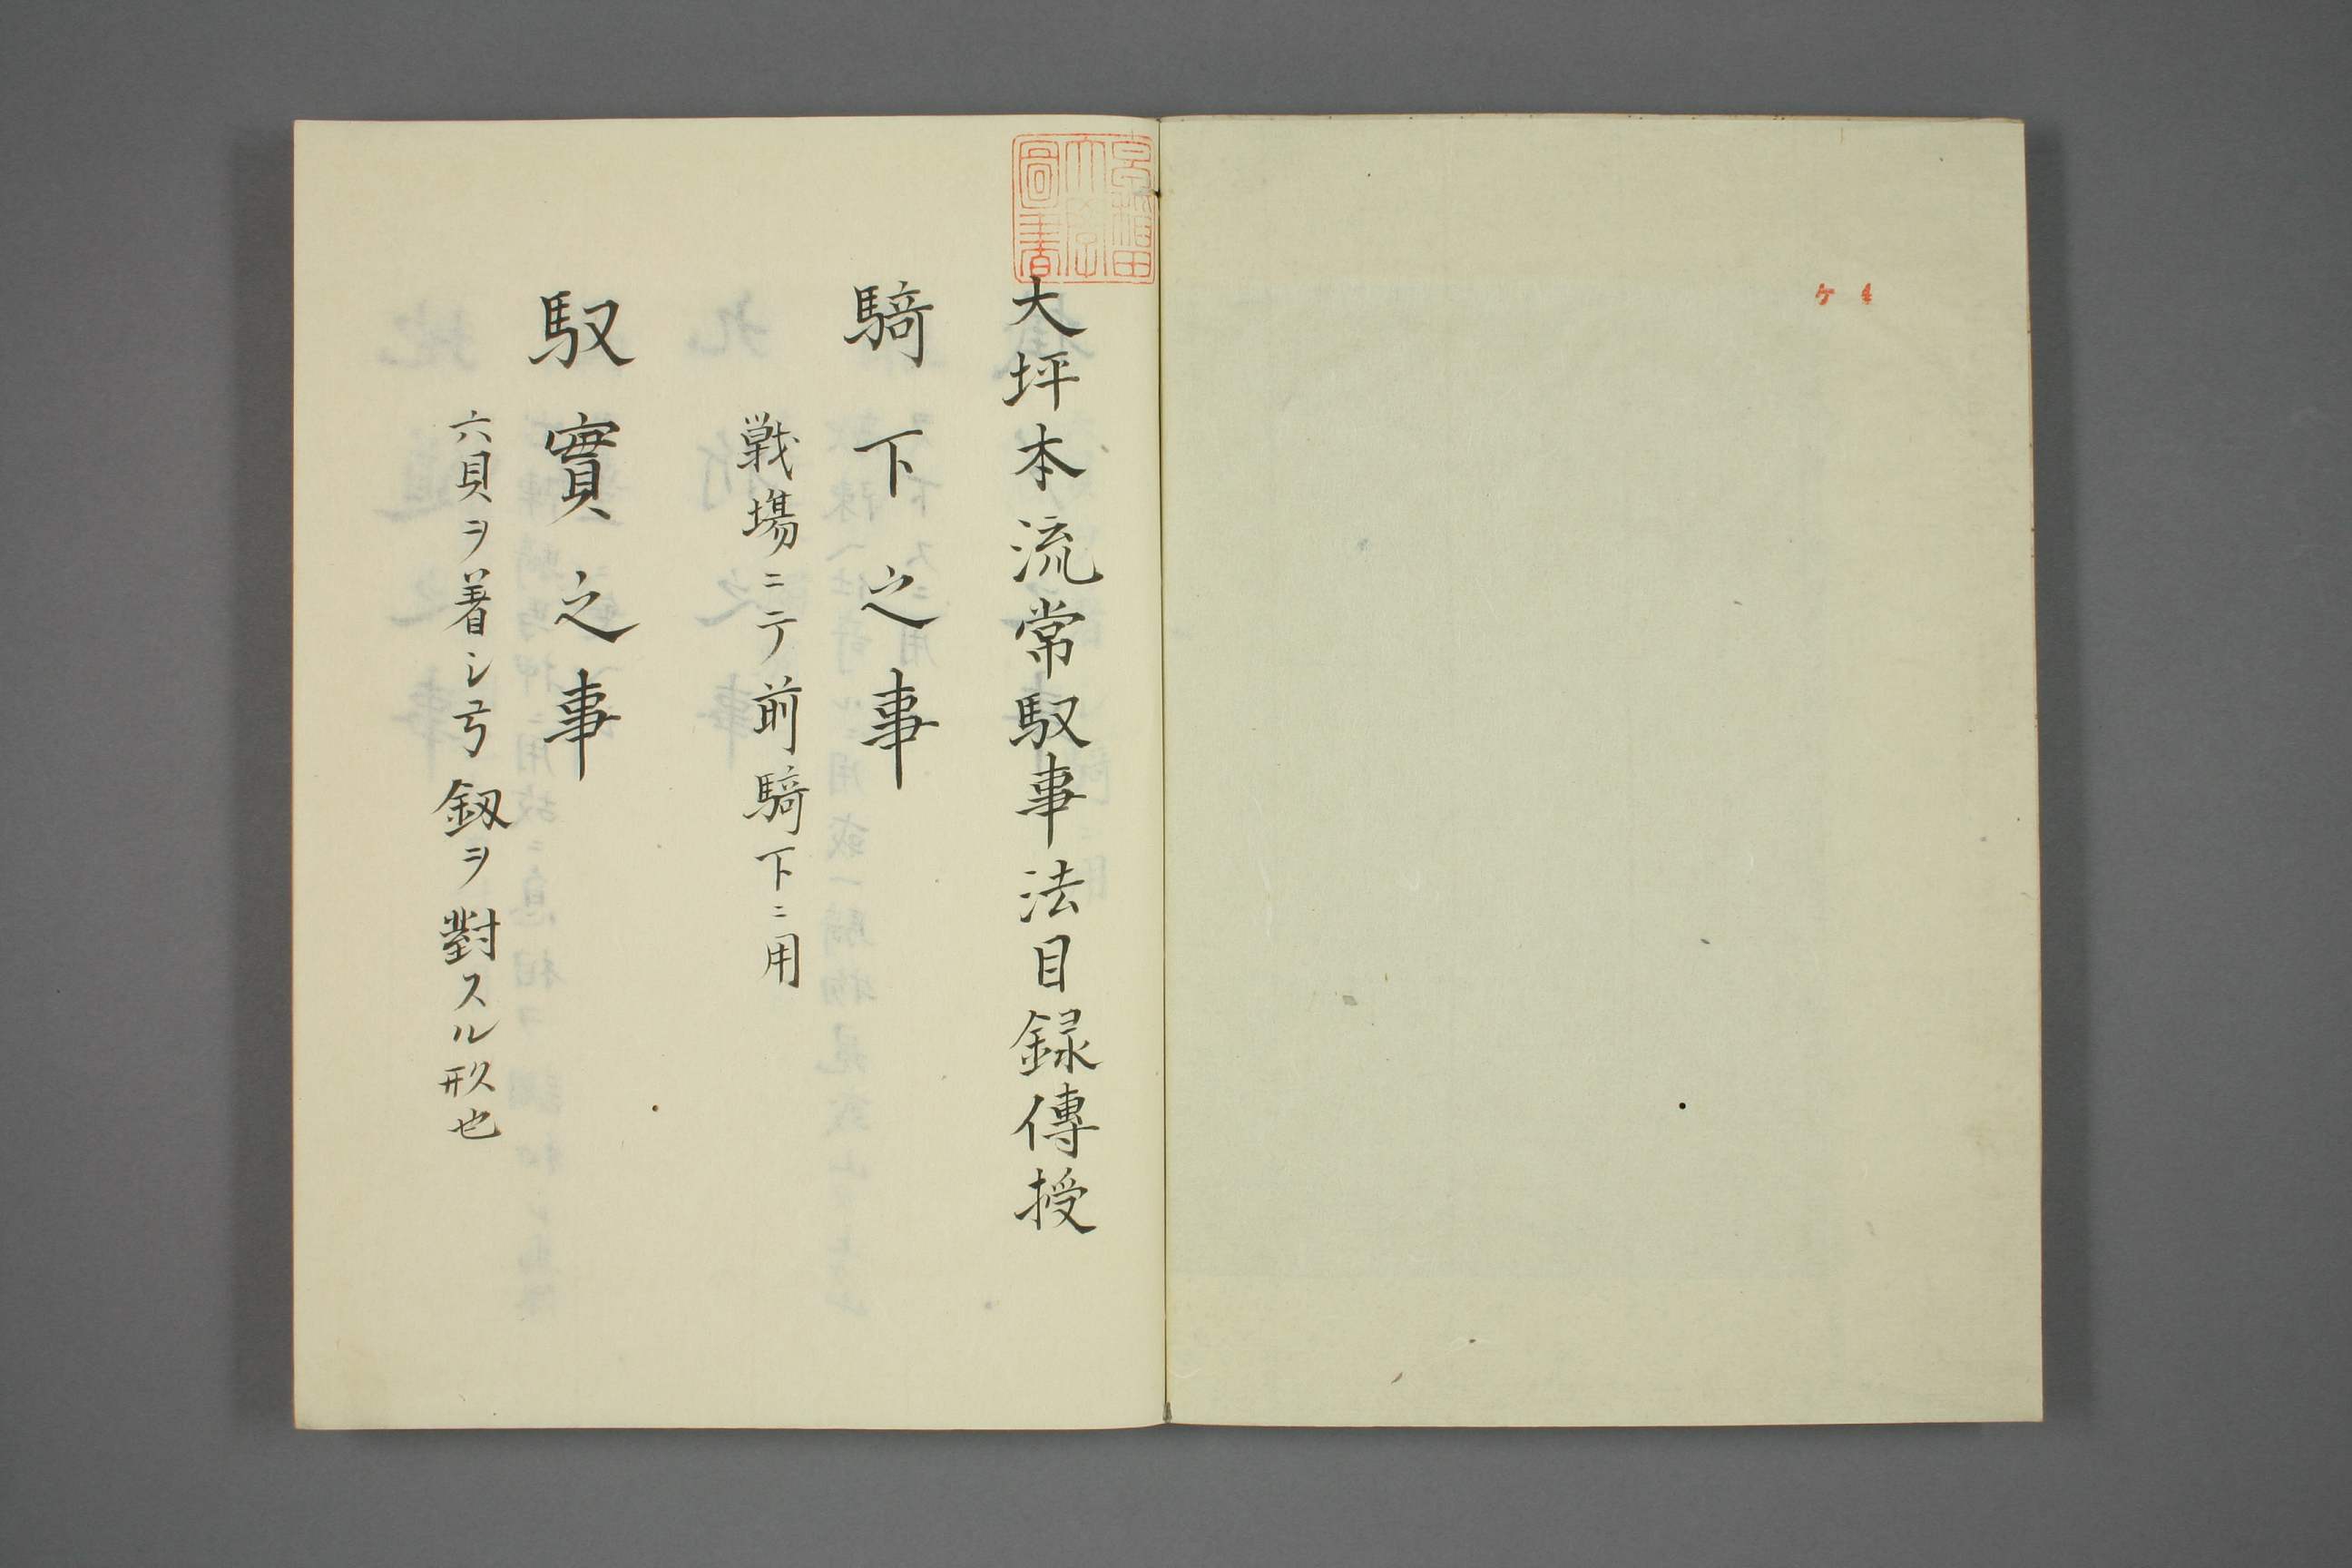 ケ 4
早稲田大學圖書
大坪本流常馭事法目録傳授
騎下之事
戦場ニテ前騎下ニ用
馭實之事
六貝ヲ着シ弓釼ヲ對スル形也